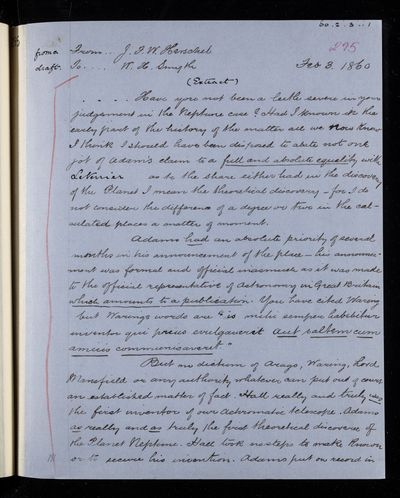 295
from a From .. J. F. W. Herschel
draft. To ..... W. H. Smyth Feb 3. 1860
(Extract)
..... Have you not been a leetle severe in your
judgement in the Neptune case? Had I known in the
early part of the history of the matter all we now know
I think I should have been disposed to abate not one
jot of Adams's claim to a full and absolute equality with
Leverrier as to the share either had in the discovery
of the Planet I mean the theoretical discovery - for I do
not consider the difference of a degree or two in the cal-
culated places a matter of moment.
Adams had an absolute priority of several
months in his announcement of the place - his announce-
ment was formal and official inasmuch as it was made
to the official representative of Astronomy in Great Britain
which amounts to a publication. You have cited Waring
but Waring's words are "is mihi semper habebitur
inventor qui prius evulgaverit aut saltem cum
amicis communicaverit"
But no dictum of Arago, Waring, Lord
Mansfield or any authority whatever can put out of court
an established matter of fact. Hall really and truly was
the first inventor of our Achromatic telescope. Adams
as really and as truly the first theoretical discoverer of
the Planet Neptune. Hall took no steps to make known
or to secure his invention. Adams put on record in